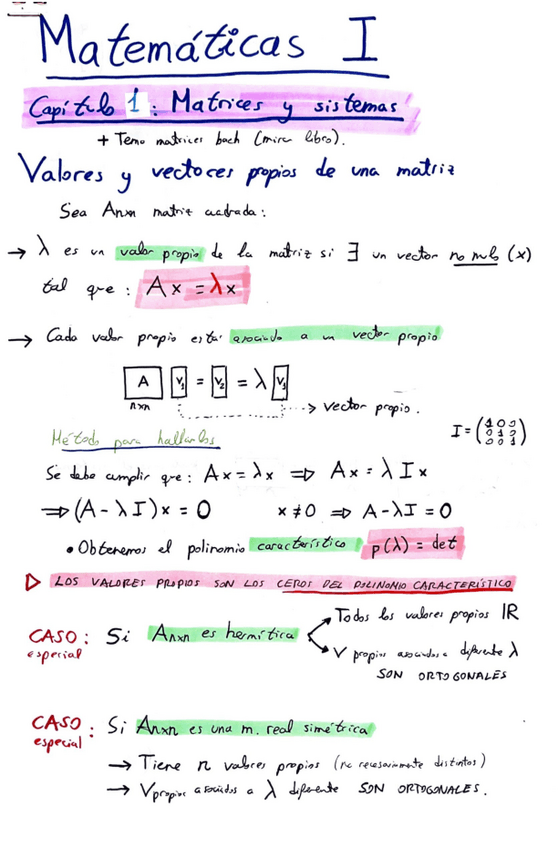 Matemáticas I
Capítulo 1: Matrices y sistemas
+ Tema matrices bach (mira libro).
Valores y vectores propios de una matriz
Sea Anxn matriz cuadrada:
→ λ es un valor propio de la matriz si ∃ un vector no nulo (x)
tal que: Ax = λx
→ Cada valor propio está asociado a un vector propio
A v₁ = v₂ = λ v₁
nxn
→ vector propio.
Método para hallarlos
I = (1 0 0
0 1 0
0 0 1)
Se debe cumplir que: Ax = λx ⇒ Ax = λIx
⇒ (A - λI)x = 0 x ≠ 0 ⇒ A - λI = 0
• Obtenemos el polinomio característico p(λ) = det
▷ LOS VALORES PROPIOS SON LOS CEROS DEL POLINOMIO CARACTERÍSTICO
CASO especial: Si Anxn es hermítica
→ Todos los valores propios IR
→ V propios asociados a diferente λ
SON ORTOGONALES
CASO especial: Si Anxn es una m. real simétrica
→ Tiene n valores propios (no necesariamente distintos)
→ Vpropios asociados a λ diferente SON ORTOGONALES.